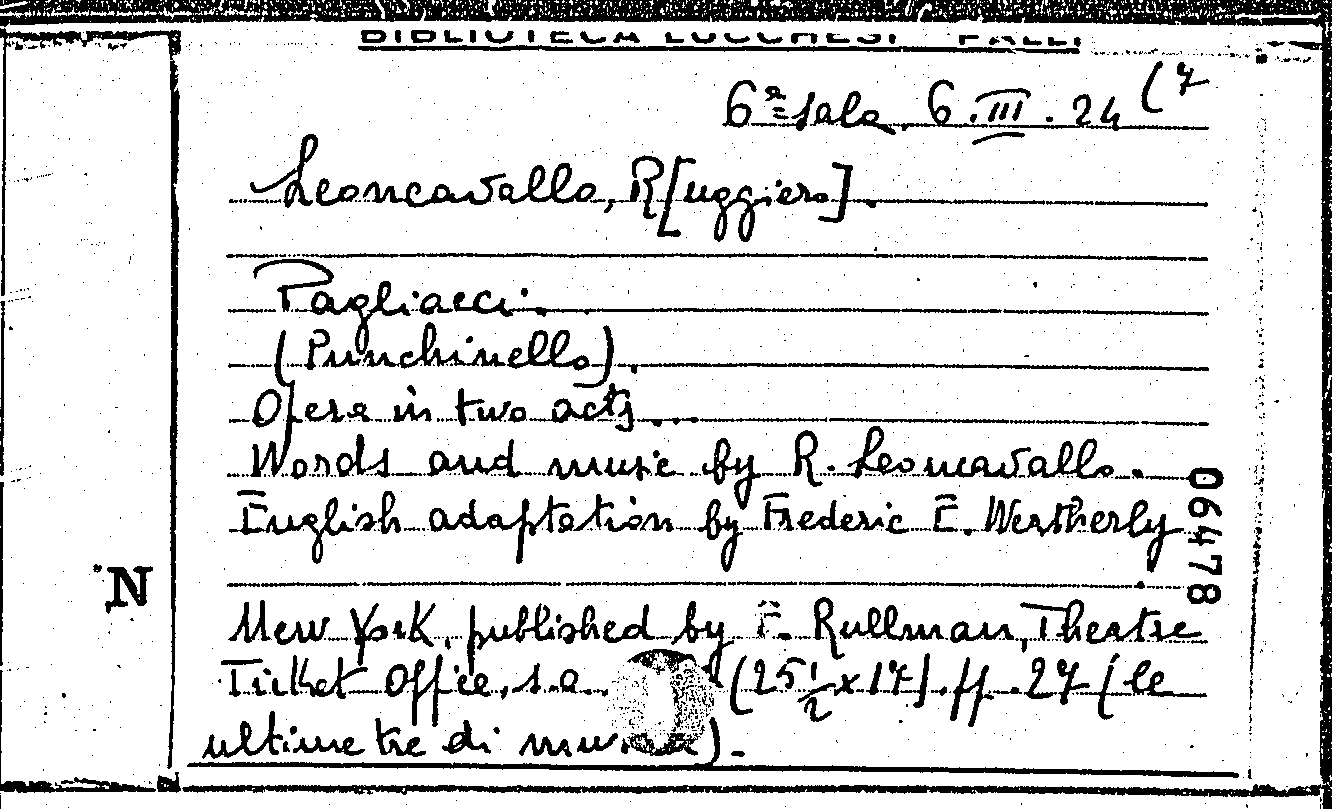 BIBLIOTECA LUCCHESI PALLI
6ª sala. 6.III.24 (7
Leoncavallo, R[uggiero].
Pagliacci.
(Punchinello).
Opera in two acts...
Words and music by R. Leoncavallo.
English adaptation by Frederic E. Wertherly.
06478
N
New York, published by F. Rullman, Theatre
Ticket Office, s.a. (25 1/2 x 17). ff. 27 (le
ultime tre di musica).